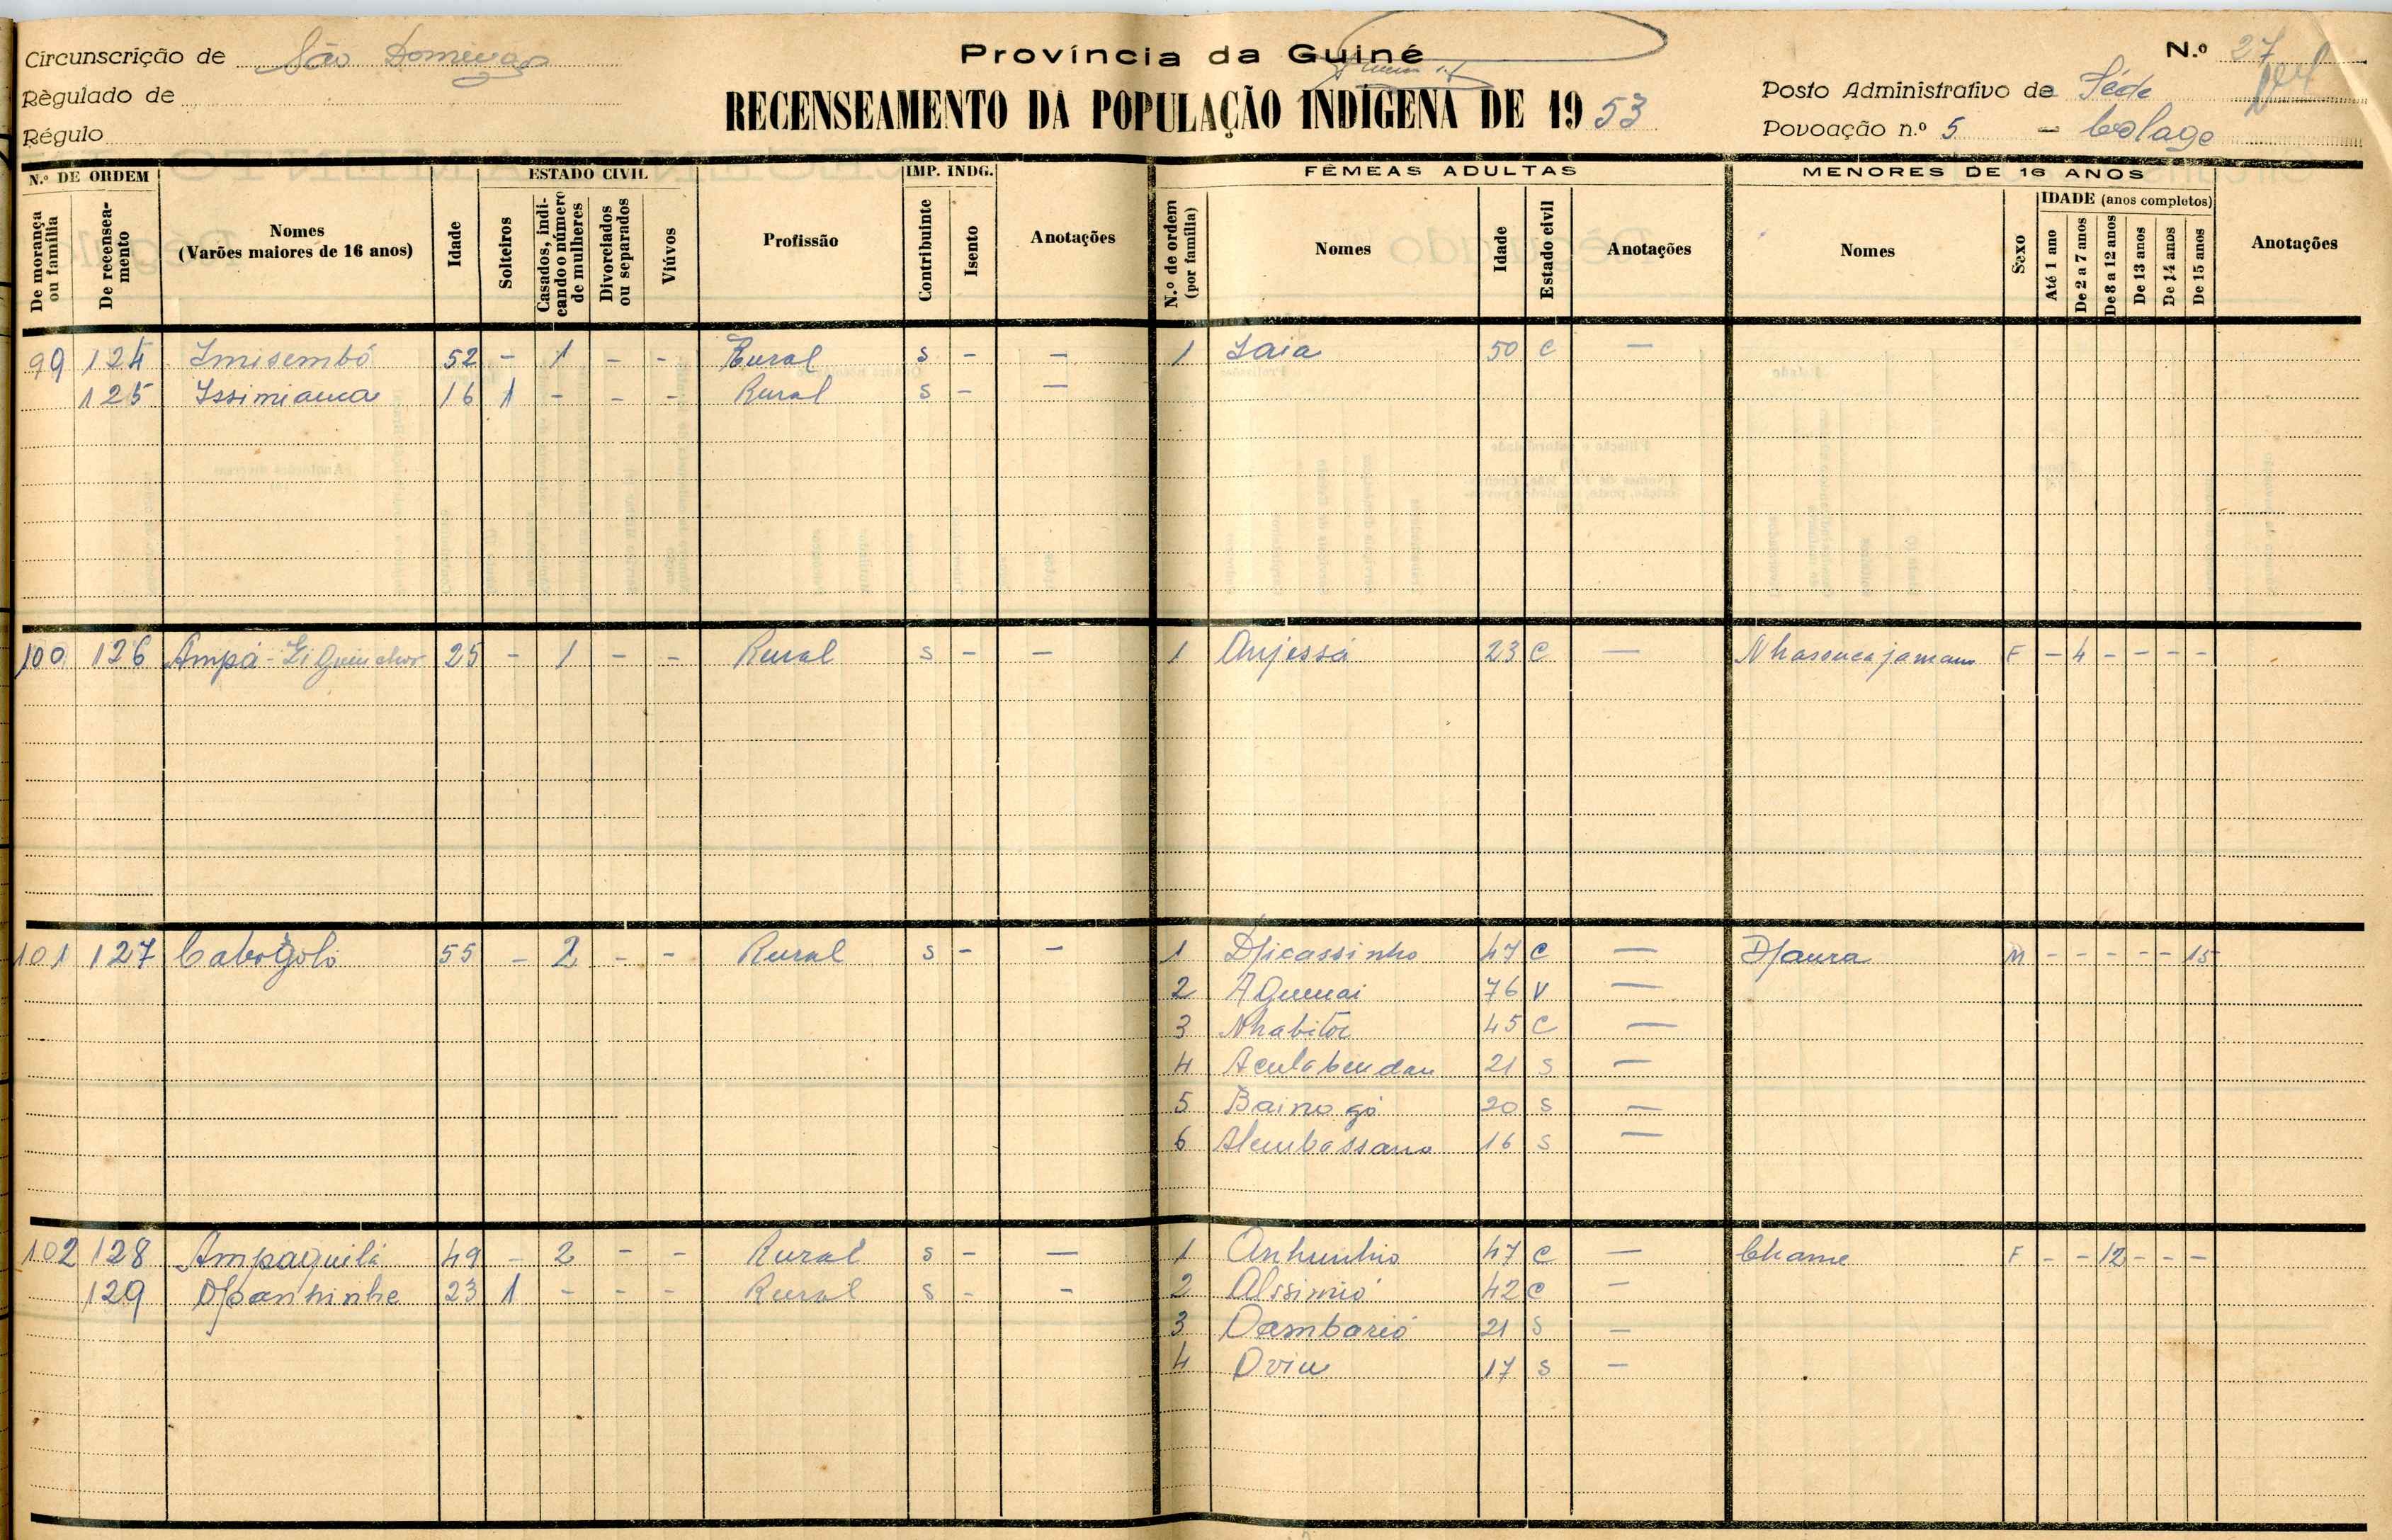 Circunscrição de São Domingos
Província da Guiné
N.º 27
Règulado de
RECENSEAMENTO DA POPULAÇÃO INDÍGENA DE 1953
Posto Administrativo de Séde
Régulo
Povoação n.º 5 - Colage
N.º DE ORDEM
De morança ou família
De recenseamento
Nomes
(Varões maiores de 16 anos)
Idade
ESTADO CIVIL
Solteiros
Casados, indicando o número de mulheres
Divorciados ou separados
Viúvos
Profissão
IMP. INDG.
Contribuinte
Isento
Anotações
FÊMEAS ADULTAS
N.º de ordem (por família)
Nomes
Idade
Estado civil
Anotações
MENORES DE 16 ANOS
Nomes
Sexo
IDADE (anos completos)
Até 1 ano
De 2 a 7 anos
De 8 a 12 anos
De 13 anos
De 14 anos
De 15 anos
Anotações
99 124 Imisembó 52 - 1 - - Rural S - - 1 Saia 50 C -
125 Issimiama 16 1 - - - Rural S - -
100 126 Ampá-Ziguinchor 25 - 1 - - Rural S - - 1 Anjessá 23 C - F - 4 - - - -
101 127 55 - 2 - - Rural S - - 1 Djicassinho 47 C - Djaura M - - - - - 15
2 76 V -
3 Nhabitoc 45 C -
4 Aculabendau 21 S -
5 Bainogó 20 S -
6 Alembassano 16 S -
102 128 Ampaquilá 49 - 2 - - Rural S - - 1 Anhunhio 47 C - Chame F - - 12 - - -
129 Djoanhinhe 23 1 - - - Rural S - - 2 Alssimió 42 C -
3 Dambarió 21 S -
4 17 S -